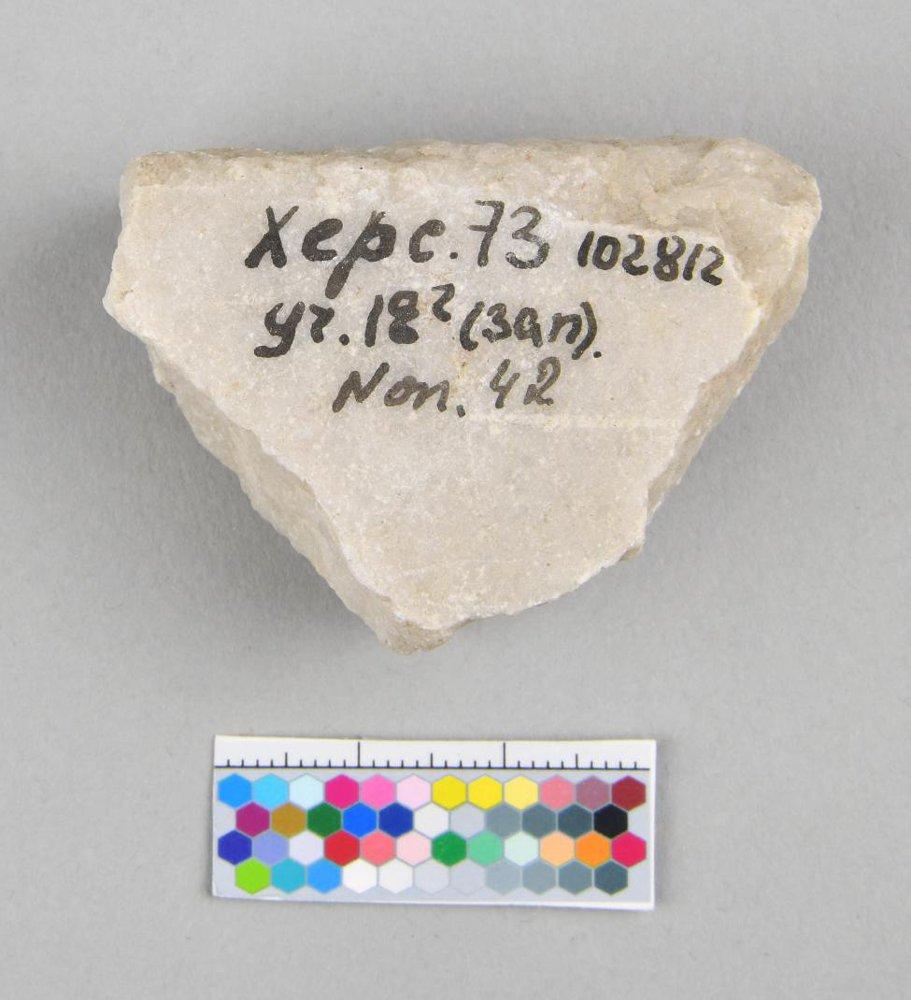 Херс. 73 102812
уч. 18² (зап).
Пол. 42